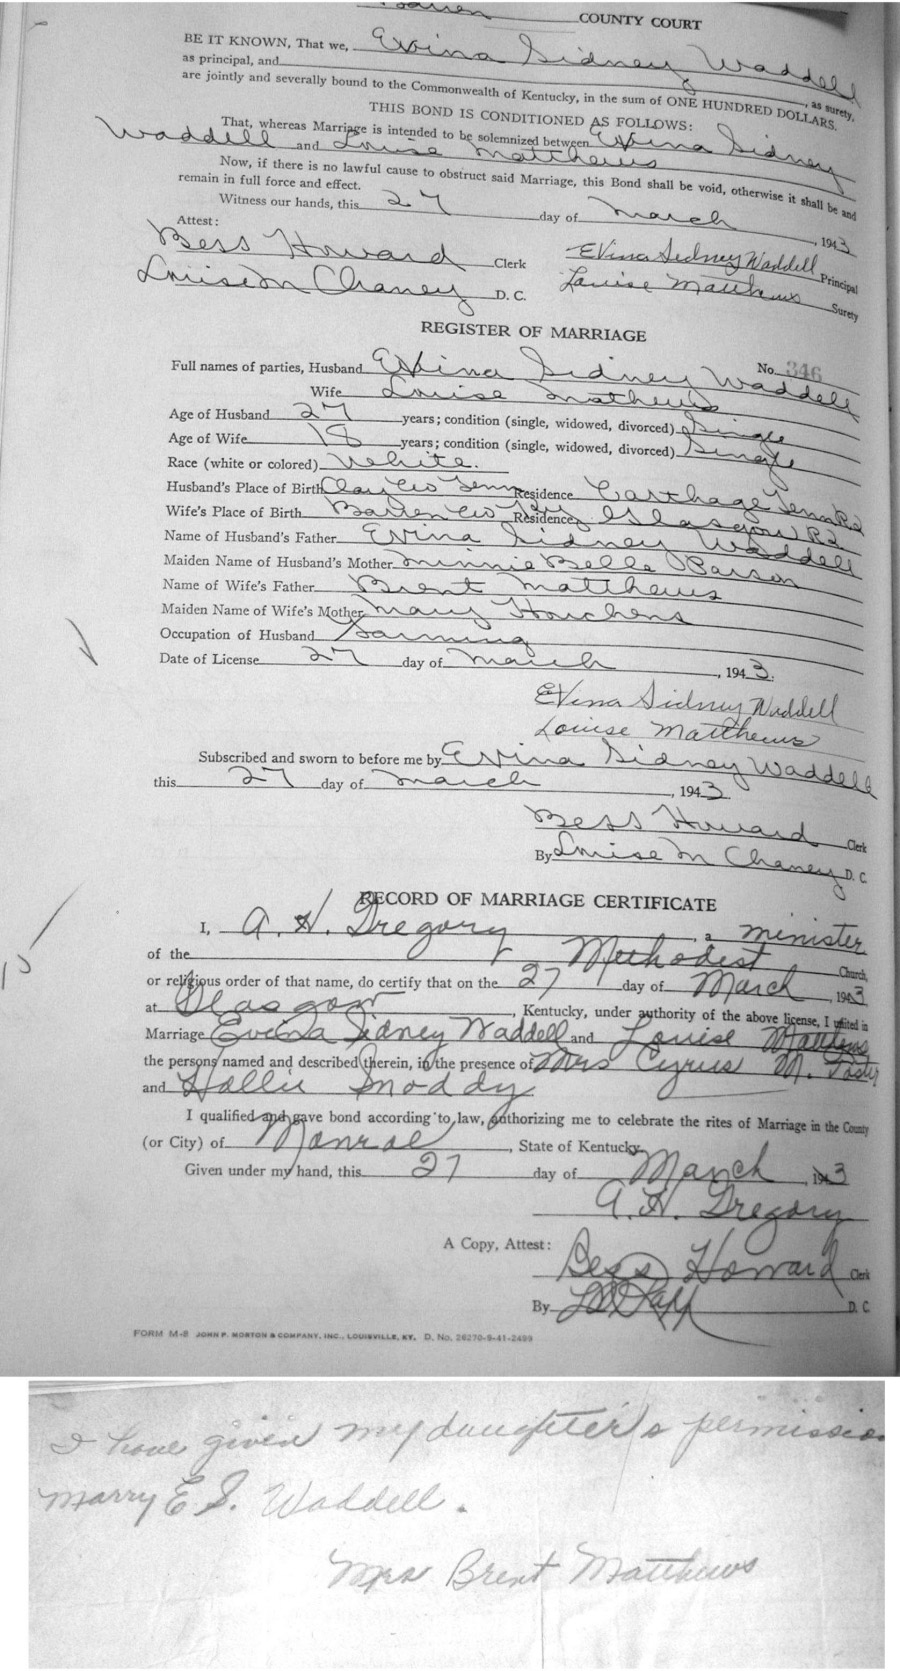 Barren COUNTY COURT
BE IT KNOWN, That we, Evina Sidney Waddell
as principal, and , as surety,
are jointly and severally bound to the Commonwealth of Kentucky, in the sum of ONE HUNDRED DOLLARS.
THIS BOND IS CONDITIONED AS FOLLOWS:
That, whereas Marriage is intended to be solemnized between Evina Sidney
Waddell and Louise Matthews
Now, if there is no lawful cause to obstruct said Marriage, this Bond shall be void, otherwise it shall be and
remain in full force and effect.
Witness our hands, this 27 day of March , 1943
Attest:
Bess Howard Clerk Evina Sidney Waddell Principal
Louise M Chaney D. C. Louise Matthews Surety
REGISTER OF MARRIAGE
No. 346
Full names of parties, Husband Evina Sidney Waddell
Wife Louise Mathews
Age of Husband 27 years; condition (single, widowed, divorced) Single
Age of Wife 18 years; condition (single, widowed, divorced) Single
Race (white or colored) White.
Husband's Place of Birth Clay Co Tenn Residence Carthage Tenn R2
Wife's Place of Birth Barren Co Ky Residence Glasgow R2
Name of Husband's Father Evina Sidney Waddell
Maiden Name of Husband's Mother Minnie Belle Parson
Name of Wife's Father Brent Matthews
Maiden Name of Wife's Mother Mary Houchens
Occupation of Husband Farming
Date of License 27 day of March , 1943.
Evina Sidney Waddell
Louise Matthews
Subscribed and sworn to before me by Evina Sidney Waddell
this 27 day of March , 1943
Bess Howard Clerk
By Louise M Chaney D. C.
RECORD OF MARRIAGE CERTIFICATE
I, A. H. Gregory , a minister
of the Methodist Church,
or religious order of that name, do certify that on the 27 day of March , 1943
at Glasgow , Kentucky, under authority of the above license, I united in
Marriage Evina Sidney Waddell and Louise Matthews
the persons named and described therein, in the presence of Mrs Cyrus M. Foster
and Hallie Moddy
I qualified and gave bond according to law, authorizing me to celebrate the rites of Marriage in the County
(or City) of Monroe , State of Kentucky.
Given under my hand, this 27 day of March , 1943
A. H. Gregory
A Copy, Attest: Bess Howard Clerk
By D. C.
FORM M-8 JOHN P. MORTON & COMPANY, INC., LOUISVILLE, KY. D. No. 26270-9-41-2499
I have given my daughter's permission
marry E S. Waddell.
Mrs Brent Matthews